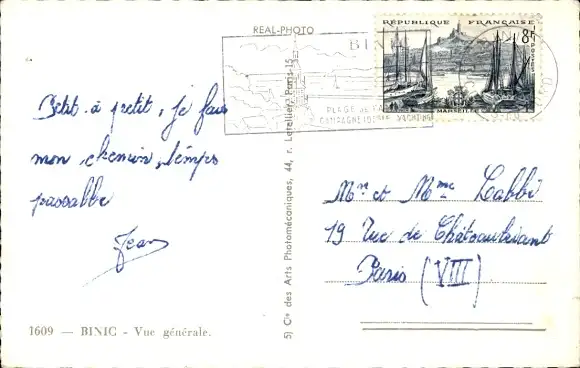 REAL-PHOTO
RÉPUBLIQUE FRANÇAISE
8F
MARSEILLE
BI
PLAGE DE
CAMPAGNE YACHTING
Petit à petit, je fais
mon chemin, temps
passable
Jean
Mr et Mme Labbé
19 Rue de Châteaubriant
Paris (VIII)
1609 — BINIC - Vue générale.
5) Cie des Arts Photomécaniques, 44, r. Letellier, Paris-15